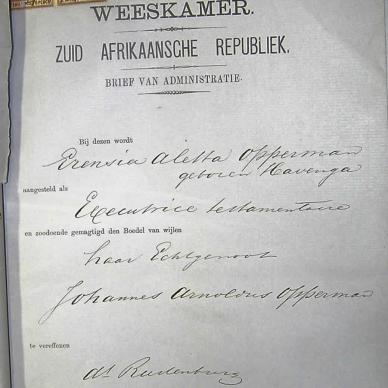 WEESKAMER.
ZUID AFRIKAANSCHE REPUBLIEK.
BRIEF VAN ADMINISTRATIE.
Bij dezen wordt
Erensia Aletta Opperman
geboren Havenga
aangesteld als
Executrice testamentaire
en zoodoende gemagtigd den Boedel van wijlen
haar Echtgenoot
Johannes Arnoldus Opperman
te vereffenen
dt Rustenburg